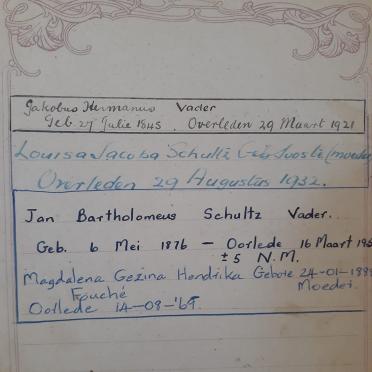 Jakobus Hermanus Vader
Geb 27 Julie 1845. Overleden 29 Maart 1921
Louisa Jacoba Schultz Geb. Joosté (moeder
Overleden 29 Augustus 1932.
Jan Bartholomeus Schultz Vader.
Geb. 6 Mei 1876 — Oorlede 16 Maart 195
± 5 N.M.
Magdalena Gezina Hendrika Gebore 24-01-188
Fouché Moeder.
Oorlede 14-08-'69.